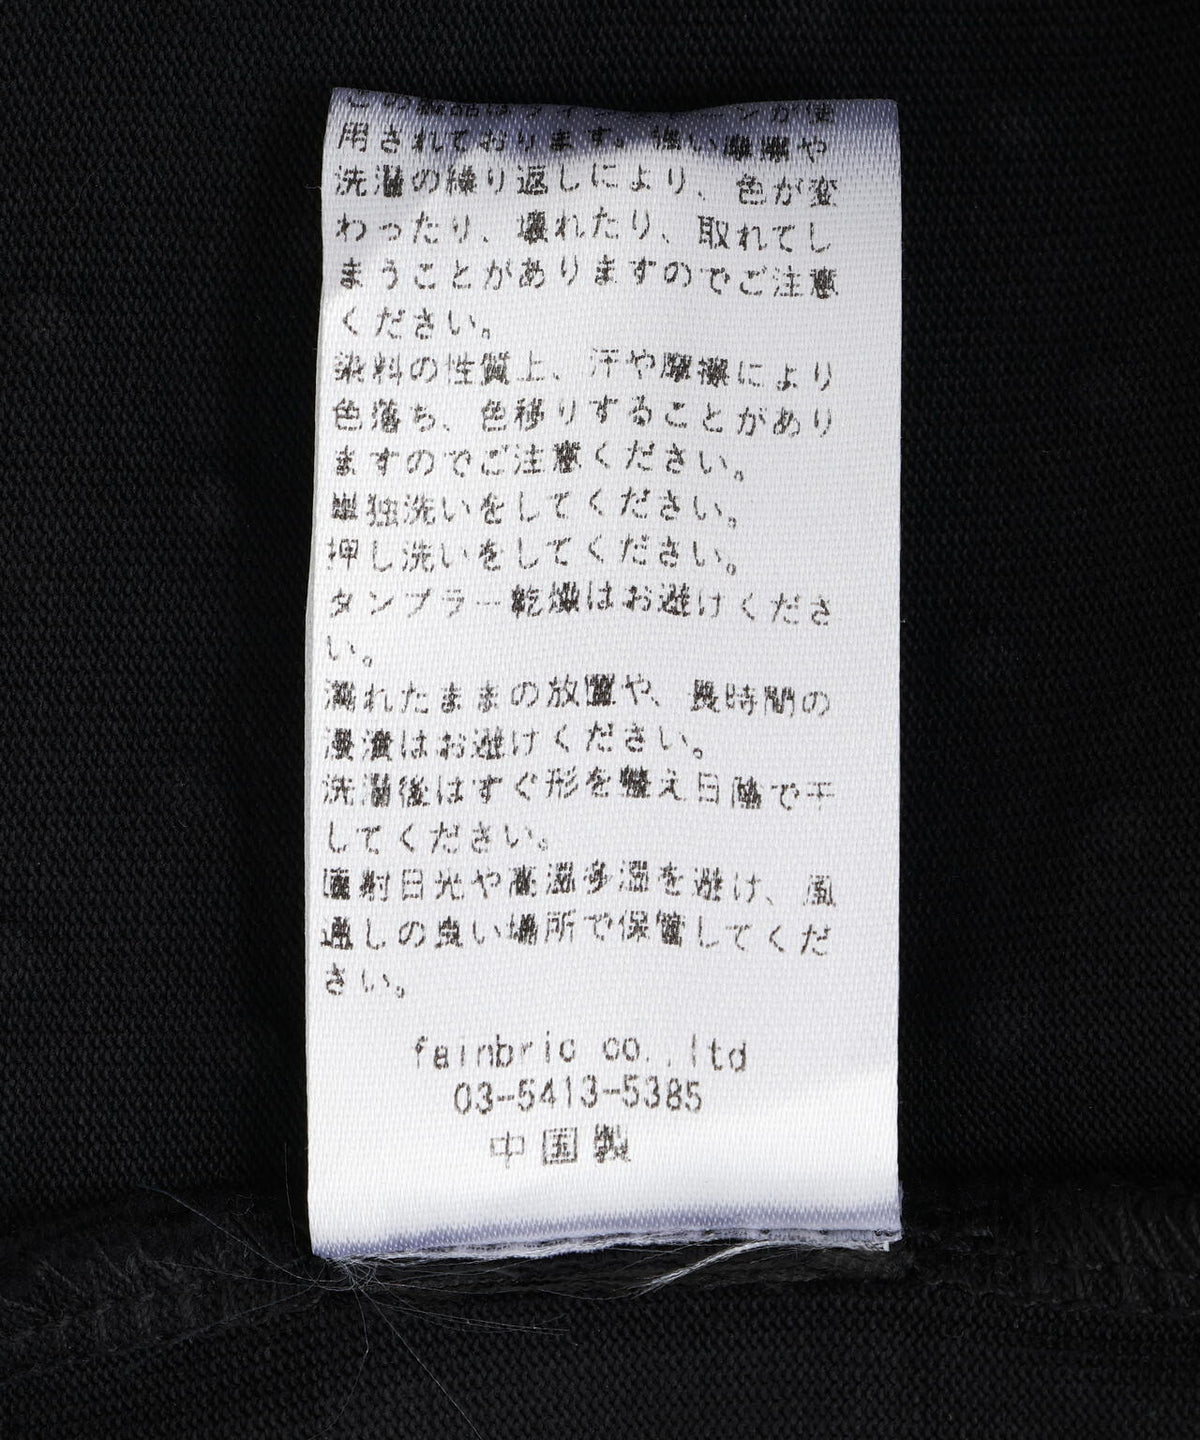 この製品は
用されております。強い摩擦や
洗濯の繰り返しにより、色が変
わったり、壊れたり、取れてし
まうことがありますのでご注意
ください。
染料の性質上、汗や摩擦により
色落ち、色移りすることがあり
ますのでご注意ください。
単独洗いをしてください。
押し洗いをしてください。
タンブラー乾燥はお避けくださ
い。
濡れたままの放置や、長時間の
浸漬はお避けください。
洗濯後はすぐ形を整え日陰で干
してください。
直射日光や高温多湿を避け、風
通しの良い場所で保管してくだ
さい。
fainbric co.,ltd
03-5413-5385
中国製